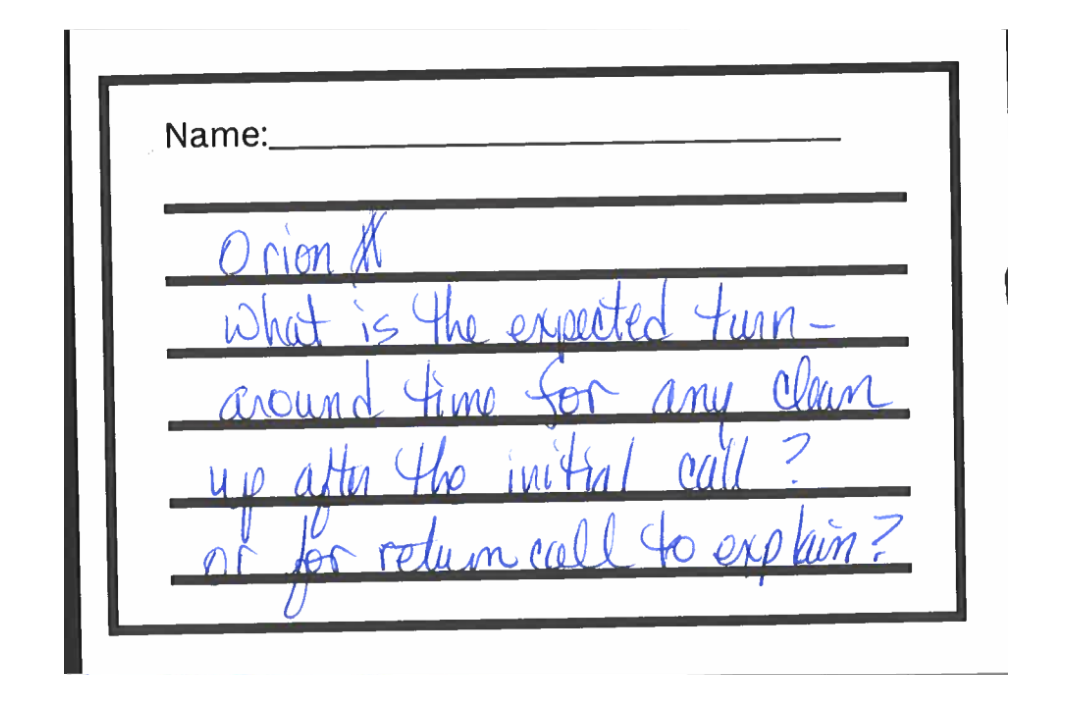 Name:
Orion
What is the expected turn-
around time for any clean
up after the initial call ?
or for return call to explain?